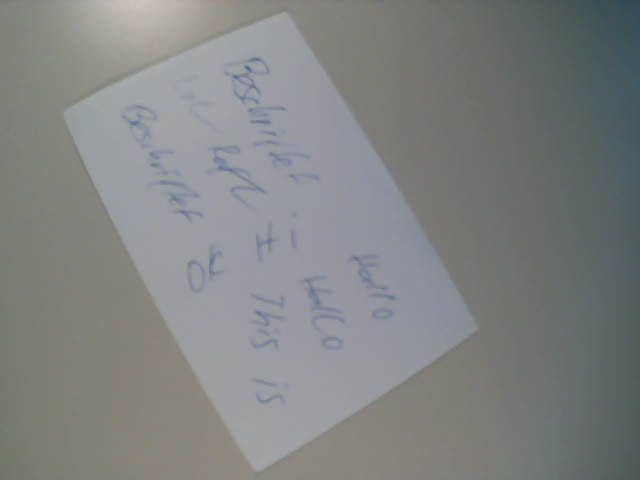 Hallo
Beschriftet :- Hallo
This is
Beschriftet